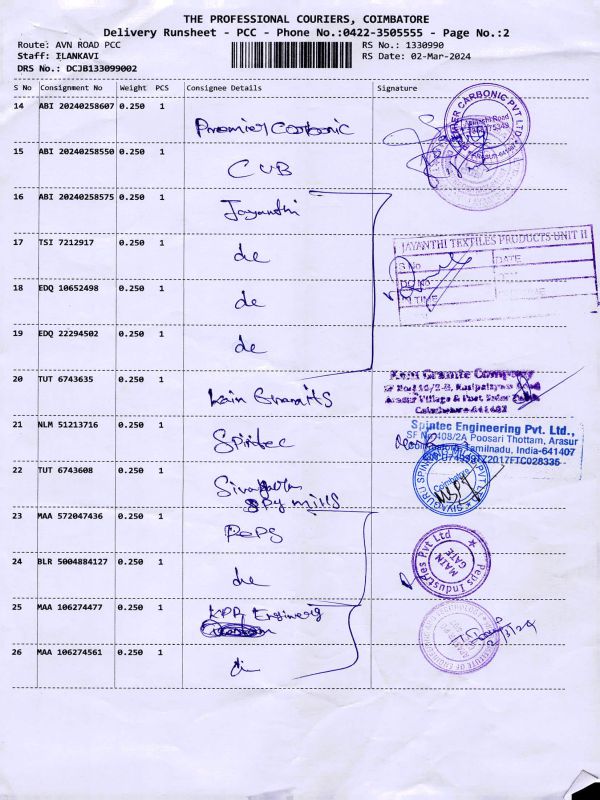 THE PROFESSIONAL COURIERS, COIMBATORE
Delivery Runsheet - PCC - Phone No.:0422-3505555 - Page No.:2
Route: AVN ROAD PCC
RS No.: 1330990
Staff: ILANKAVI
RS Date: 02-Mar-2024
DRS No.: DCJB133099002
S No Consignment No Weight PCS Consignee Details Signature
14 ABI 20240258607 0.250 1 Premier Carbonic
15 ABI 20240258550 0.250 1 CUB
16 ABI 20240258575 0.250 1 Jayanthi
17 TSI 7212917 0.250 1 do
JAYANTHI TEXTILES PRODUCTS UNIT II
S.No DATE
TIME
18 EDQ 10652498 0.250 1 do
19 EDQ 22294502 0.250 1 do
20 TUT 6743635 0.250 1
Granite Company
Coimbatore-641407
21 NLM 51213716 0.250 1 Spintec
Spintec Engineering Pvt. Ltd.,
SF No 408/2A Poosari Thottam, Arasur
Coimbatore, Tamilnadu, India-641407
22 TUT 6743608 0.250 1
mills
23 MAA 572047436 0.250 1 PePS
Peps Industries Pvt Ltd
MAIN GATE
24 BLR 5004884127 0.250 1 do
25 MAA 106274477 0.250 1 KPR
26 MAA 106274561 0.250 1